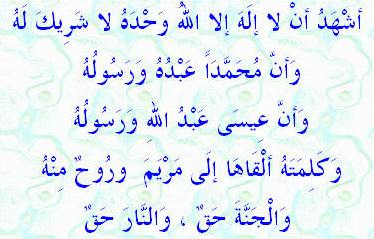 أشْهَدُ أنْ لا إلَهَ إلا اللهُ وَحْدَهُ لا شَرِيكَ لَهُ
وَأنَّ مُحَمَّدَاً عَبْدُهُ وَرَسُولُهُ
وَأنَّ عِيسَى عَبْدُ اللهِ وَرَسُولُهُ
وَكَلِمَتَهُ ألْقَاهَا إلَى مَرْيَمَ وَرُوحٌ مِنْهُ
وَالْجَنَّةَ حَقٌ ، وَالنَّارَ حَقٌ